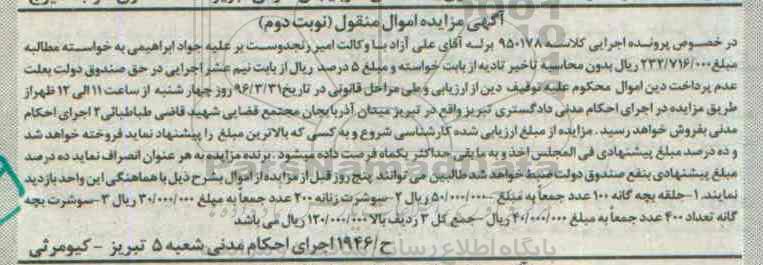 آگهی مزایده اموال منقول (نوبت دوم)
در خصوص پرونده اجرایی کلاسه ۹۵۰۱۷۸ برله آقای علی آزاد با وکالت امیر رنجدوست بر علیه جواد ابراهیمی به خواسته مطالبه
مبلغ ۲۳۲/۷۱۶/۰۰۰ ریال بدون محاسبه تاخیر تادیه از بابت خواسته و مبلغ ۵ درصد ریال از بابت نیم عشر اجرایی در حق صندوق دولت بعلت
عدم پرداخت دین اموال محکوم علیه توقیف دین از ارزیابی و طی مراحل قانونی در تاریخ ۹۶/۳/۳۱ روز چهار شنبه از ساعت ۱۱ الی ۱۲ ظهر از
طریق مزایده در اجرای احکام مدنی دادگستری تبریز واقع در تبریز میدان آذربایجان مجتمع قضایی شهید قاضی طباطبائی ۲ اجرای احکام
مدنی بفروش خواهد رسید. مزایده از مبلغ ارزیابی شده کارشناسی شروع و به کسی که بالاترین مبلغ را پیشنهاد نماید فروخته خواهد شد
و ده درصد مبلغ پیشنهادی فی المجلس اخذ و به مابقی حداکثر یکماه فرصت داده میشود. برنده مزایده به هر عنوان انصراف نماید ده درصد
مبلغ پیشنهادی بنفع صندوق دولت ضبط خواهد شد طالبین می توانند پنج روز قبل از مزایده از اموال بشرح ذیل با هماهنگی این واحد بازدید
نمایند. ۱-حلقه بچه گانه ۱۰۰ عدد جمعاً به مبلغ ۵۰/۰۰۰/۰۰۰ ریال ۲-سوشرت زنانه ۲۰۰ عدد جمعاً به مبلغ ۳۰/۰۰۰/۰۰۰ ریال ۳-سوشرت بچه
گانه تعداد ۴۰۰ عدد جمعاً به مبلغ ۴۰/۰۰۰/۰۰۰ ریال -جمع کل ۳ ردیف بالا ۱۲۰/۰۰۰/۰۰۰ ریال می باشد
ح/۱۹۴۶ اجرای احکام مدنی شعبه ۵ تبریز - کیومرثی